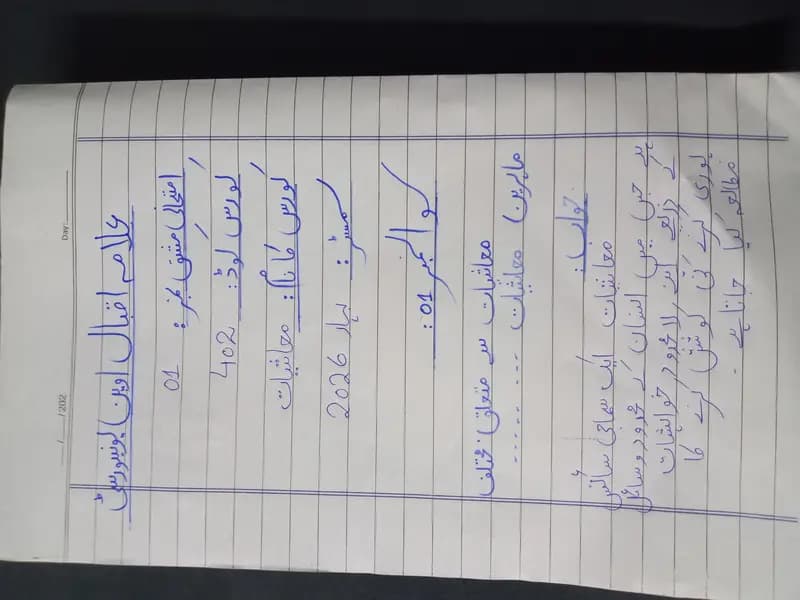 Day: ______
___/___/202
علامہ اقبال اوپن یونیورسٹی
امتحانی مشق نمبر: 01
کورس کوڈ: 402
کورس کا نام: معاشیات
سمسٹر: بہار 2026
سوال نمبر 01:
معاشیات سے متعلق مختلف
ماہرین معاشیات ... ......
جواب:
معاشیات ایک سماجی سائنس
ہے جس میں انسان کے محدود وسائل
کے ذریعے اپنی لامحدود خواہشات
پوری کرنے کی کوشش کرنے کا
مطالعہ کیا جاتا ہے۔